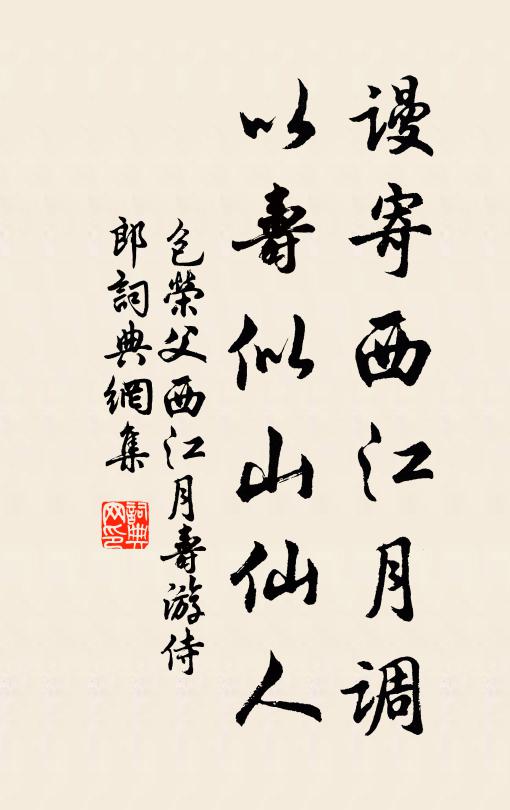 谩寄西江月调
以壽似山仙人
包榮父西江月壽游侍
郎詞典網集
詞典网印